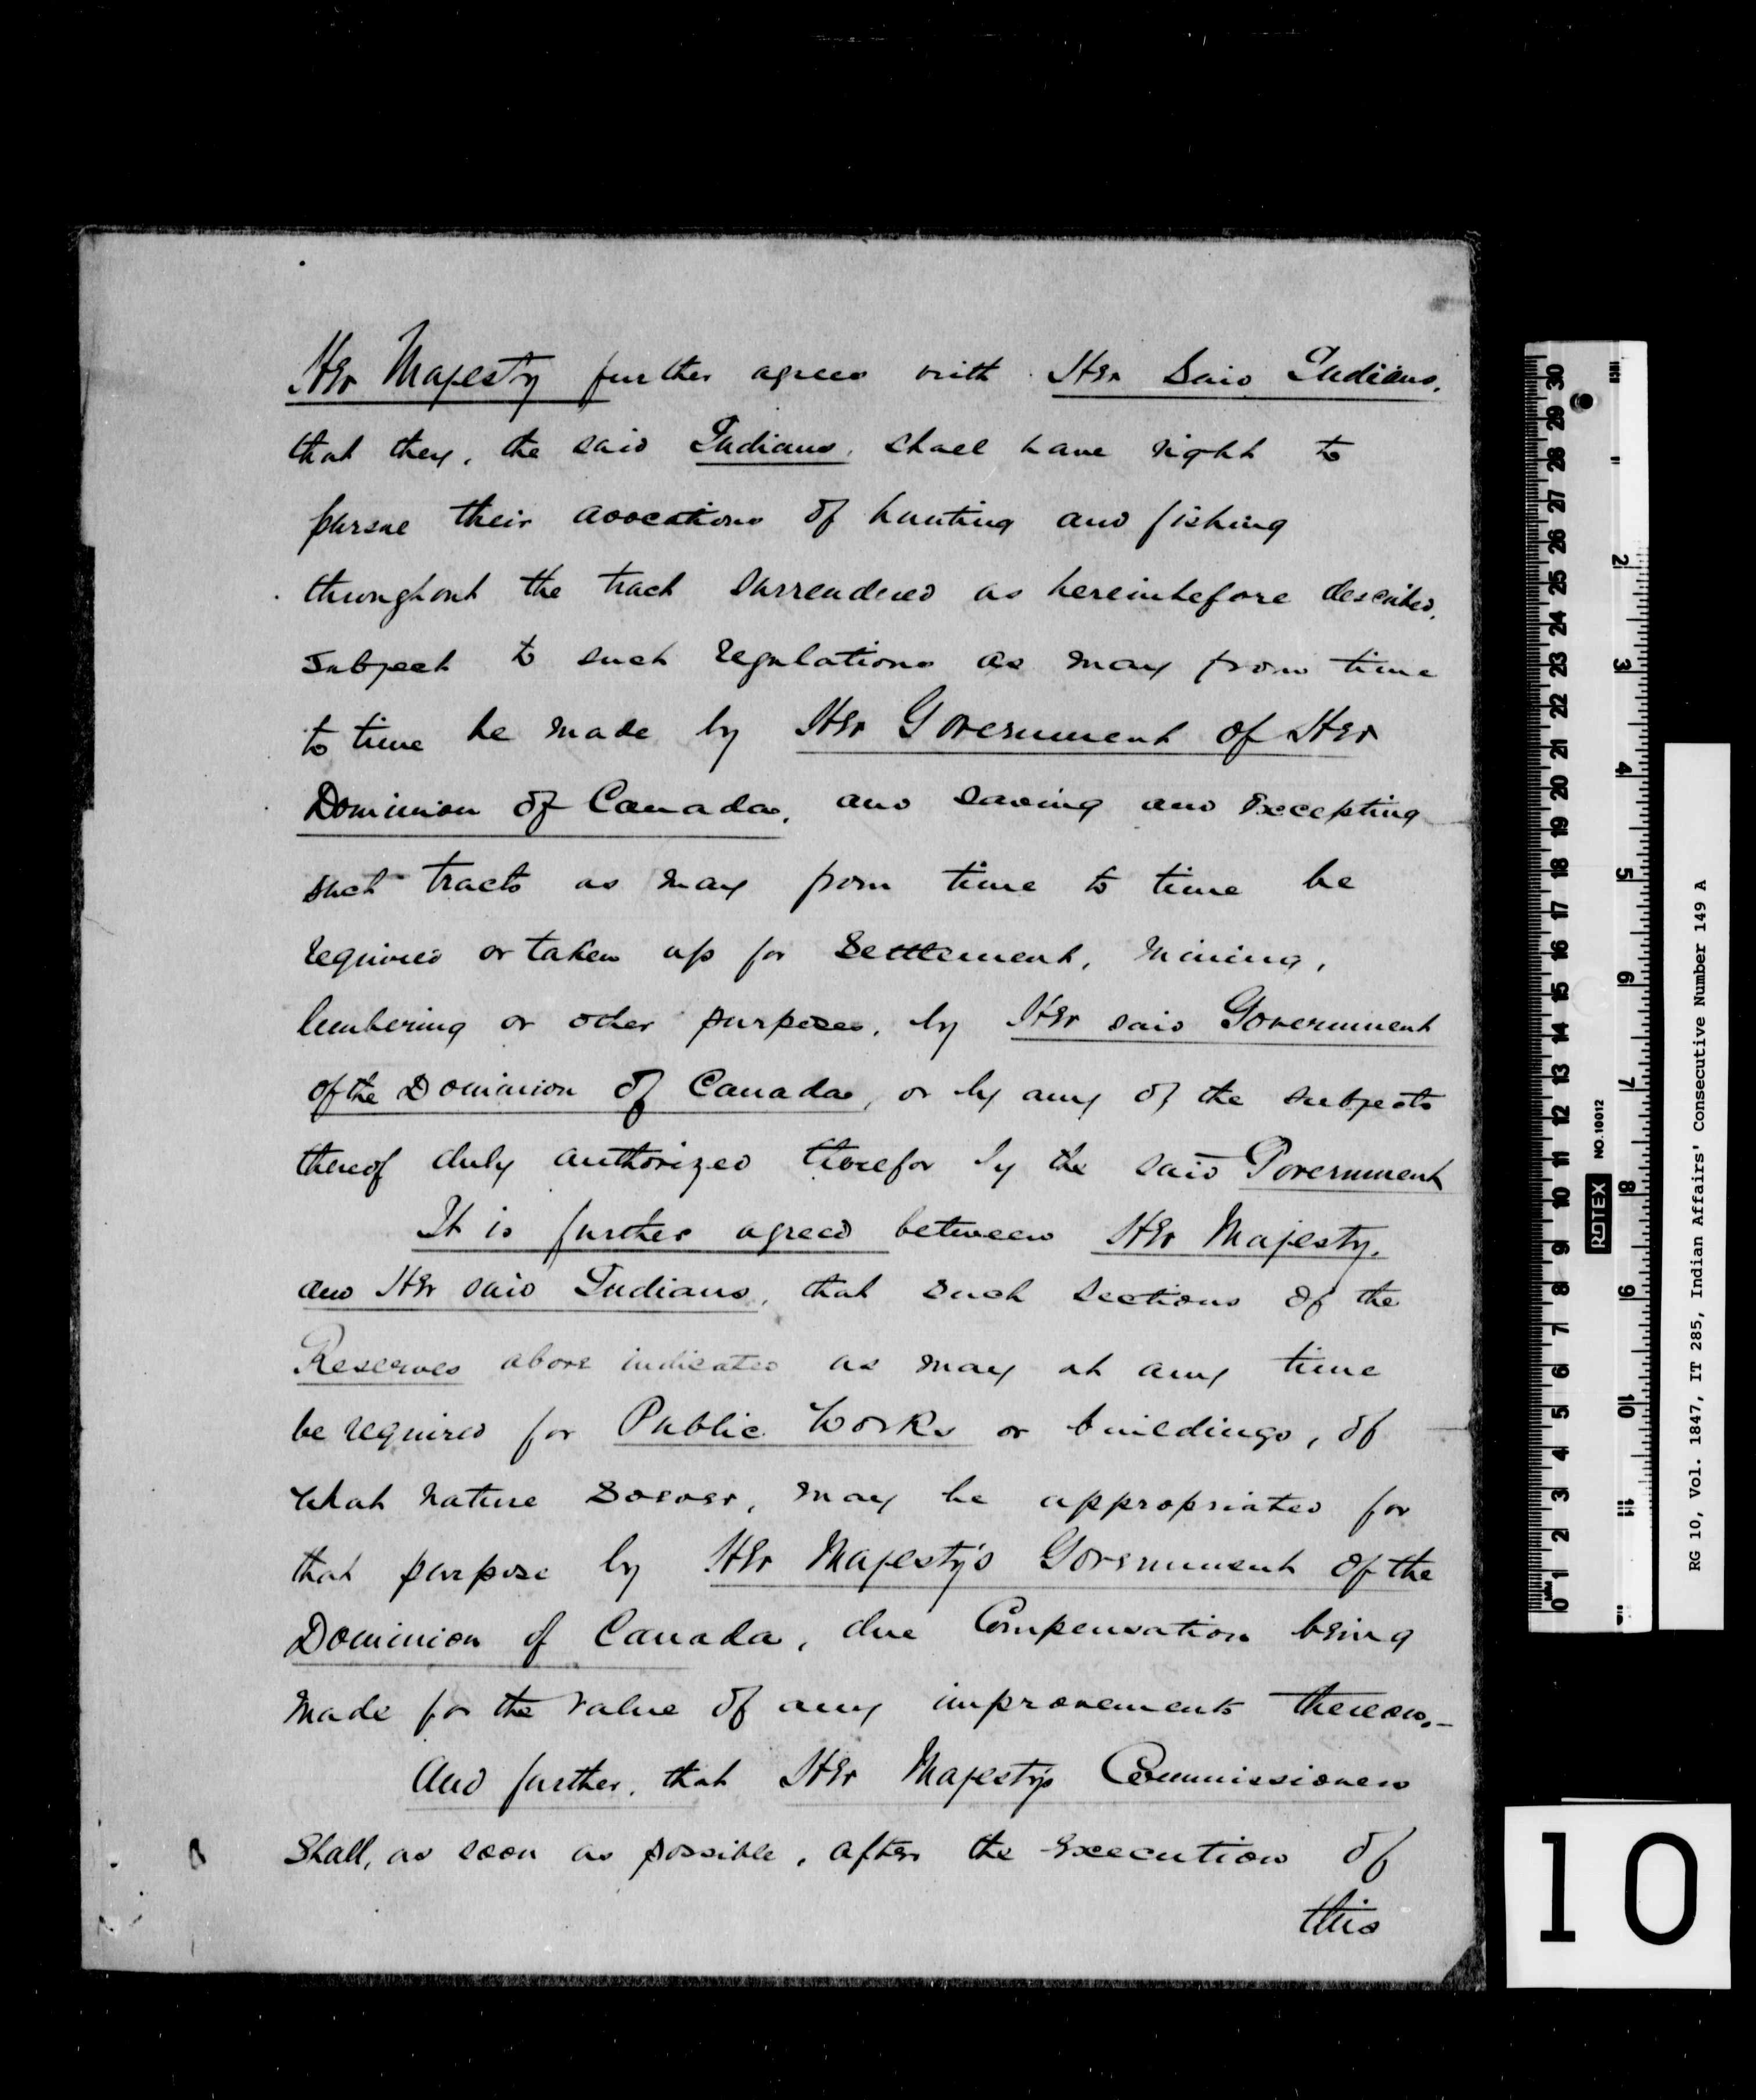 Her Majesty further agrees with Her Said Indians,
that they, the said Indians, shall have right to
pursue their avocations of hunting and fishing
throughout the tract surrendered as hereinbefore described,
subject to such regulations as may from time
to time be made by Her Government of Her
Dominion of Canada, and saving and excepting
such tracts as may from time to time be
required or taken up for Settlement, Mining,
lumbering or other purposes, by Her said Government
of the Dominion of Canada, or by any of the subjects
thereof duly authorized therefor by the said Government
It is further agreed between Her Majesty,
and Her said Indians, that such sections of the
Reserves above indicated as may at any time
be required for Public Works or buildings, of
what nature soever, may be appropriated for
that purpose by Her Majesty's Government of the
Dominion of Canada, due Compensation being
made for the value of any improvements thereon.—
And further, that Her Majesty's Commissioners
Shall, as soon as possible, after the execution of
this
30 29 28 27 26 25 24 23 22 21 20 19 18 17 16 15 14 13 12 11 10 9 8 7 6 5 4 3 2 1 0
2 3 4 5 6 7 8 9 10 11
ROTEX NO.10012
RG 10, Vol. 1847, IT 285, Indian Affairs' Consecutive Number 149 A
10